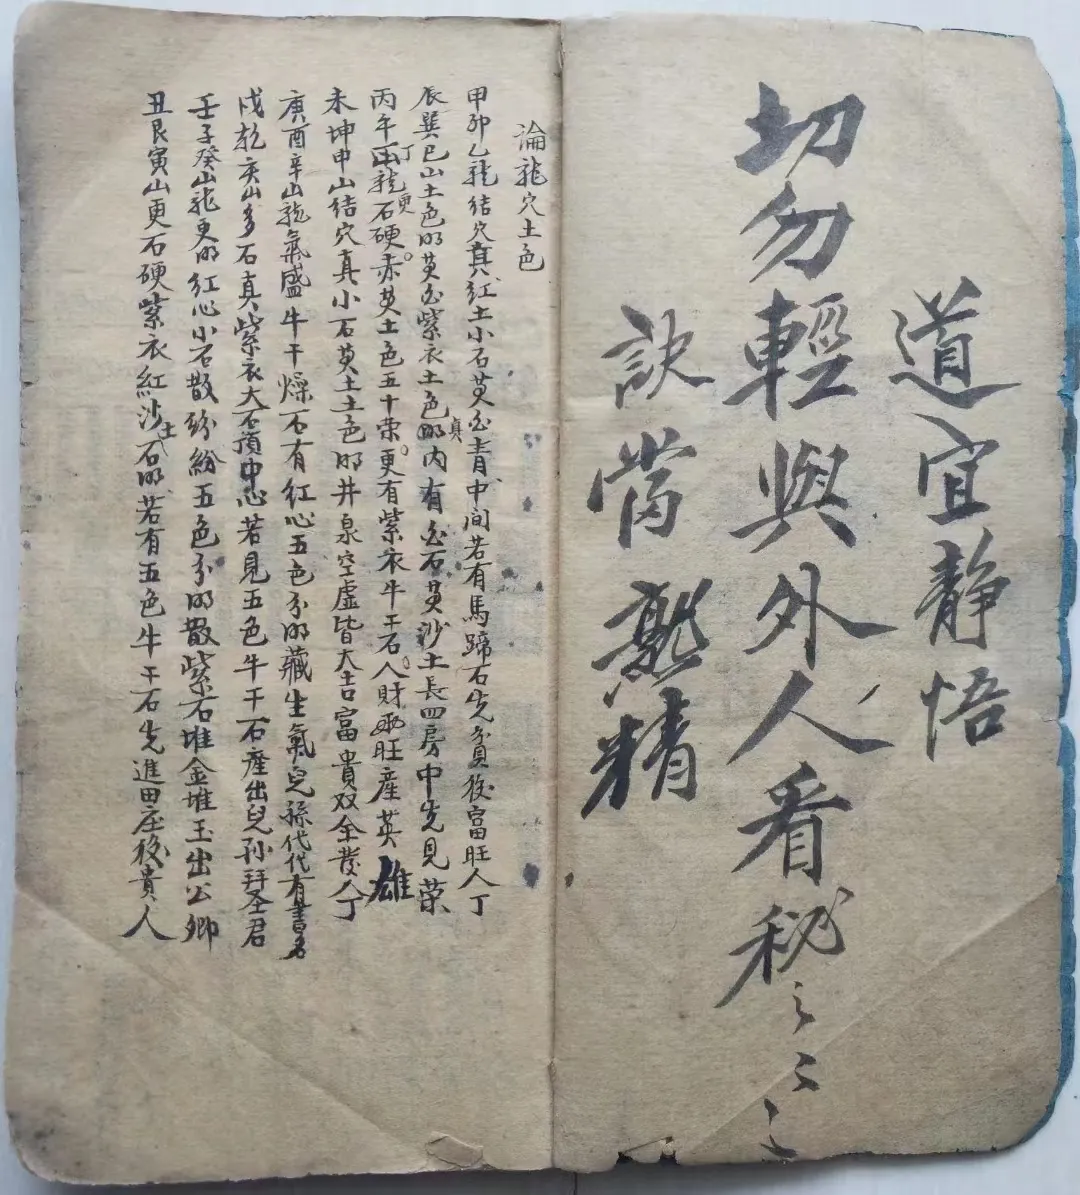 道宜静悟
切勿輕與外人看秘之之之
訣當熟精
論龍穴土色
甲卯乙龍结穴真紅土小石黄白青中间若有馬蹄石先貧後富旺人丁
辰巽巳山土色明黄白紫衣土色明真内有白石黄沙土長四房中先見荣
丙午丁龍石更硬赤黄土色五十荣更有紫衣牛干石人財両旺産英雄
未坤申山结穴真小石黄土土色明井泉空虚皆大吉富貴双全發人丁
庚酉辛山龍氣盛牛干燥石有红心五色分明藏生氣兒孫代代有書名
戌乾亥山多石真紫衣大石顶中心若見五色牛干石産出兒孙拜圣君
壬子癸山龍更明红心小石散紛紛五色分明散紫石堆金堆玉出公卿
丑艮寅山更石硬紫衣紅沙土石明若有五色牛干石先進田庄後貴人